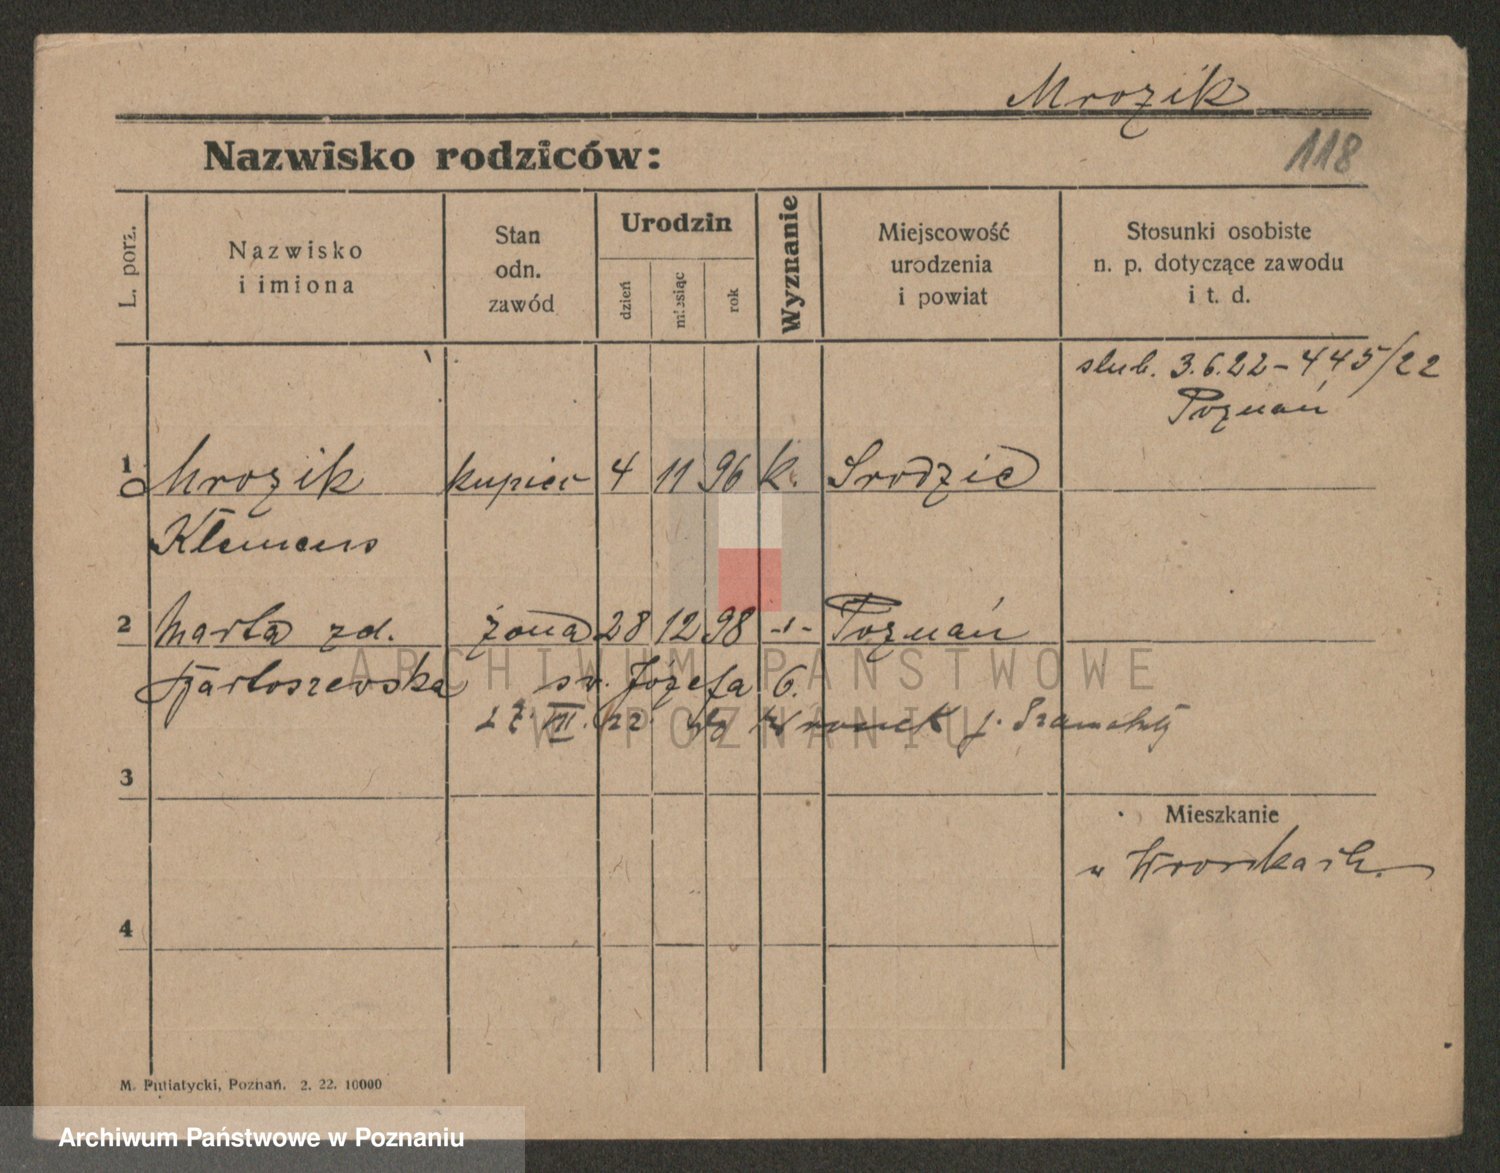 Mrozik
118
Nazwisko rodziców:
L. porz.
Nazwisko
i imiona
Stan
odn.
zawód
Urodzin
dzień
miesiąc
rok
Wyznanie
Miejscowość
urodzenia
i powiat
Stosunki osobiste
n. p. dotyczące zawodu
i t. d.
slub. 3.6.22 - 445/22
Poznań
1 Mrozik kupiec 4 11 96 K.
Klemens
2 Marta zd. żona 28 12 98 -"- Poznań
Bartoszewska św. Józefa 6.
27. VI. 22. do Wronek p. Szamotuły
3
Mieszkanie
w Wronkach.
4
M. Putiatycki, Poznań. 2. 22. 10000
ARCHIWUM PAŃSTWOWE
W POZNANIU
Archiwum Państwowe w Poznaniu